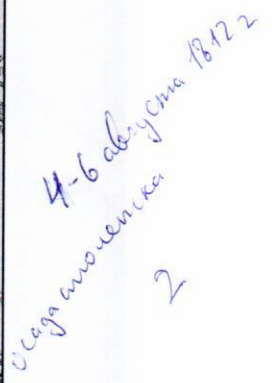 4-6 августа 1812 г
осада смоленска
2